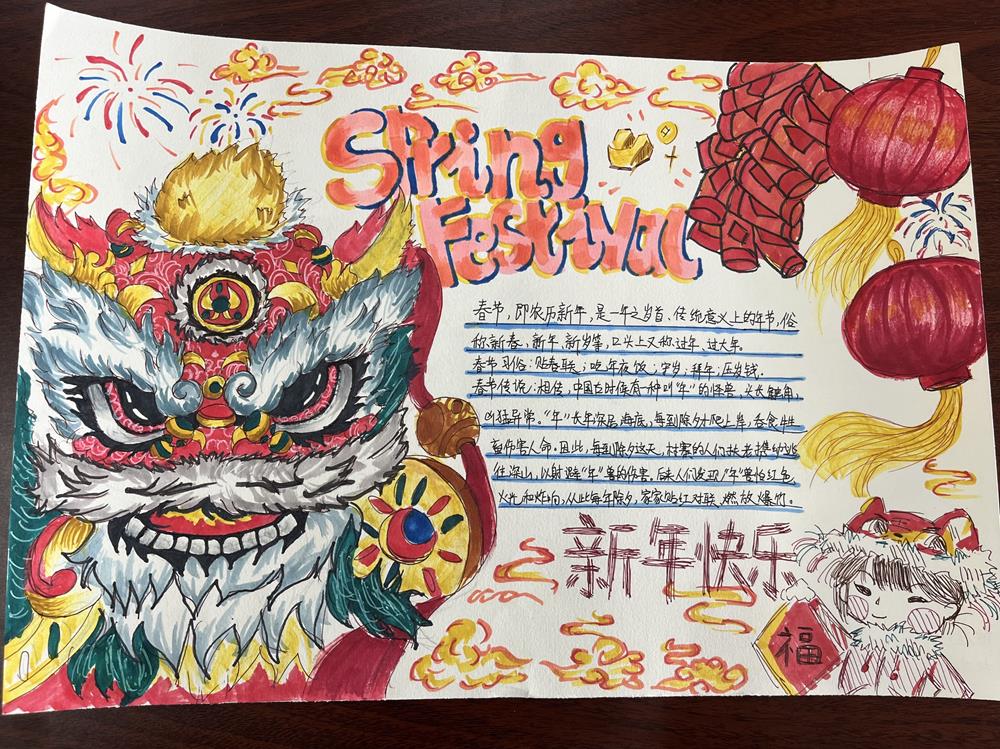 Spring
Festival
春节，即农历新年，是一年之岁首、传统意义上的年节，俗
称新春、新年、新岁等，口头上又称过年、过大年。
春节习俗：贴春联；吃年夜饭；守岁；拜年；压岁钱。
春节传说：相传，中国古时候有一种叫“年”的怪兽，头长触角，
凶猛异常。“年”长年深居海底，每到除夕才爬上岸，吞食牲
畜伤害人命。因此，每到除夕这天，村寨的人们扶老携幼逃
往深山，以躲避“年”兽的伤害。后来人们发现“年”兽怕红色、
火光和炸响，从此每年除夕，家家贴红对联、燃放爆竹。
新年快乐
福